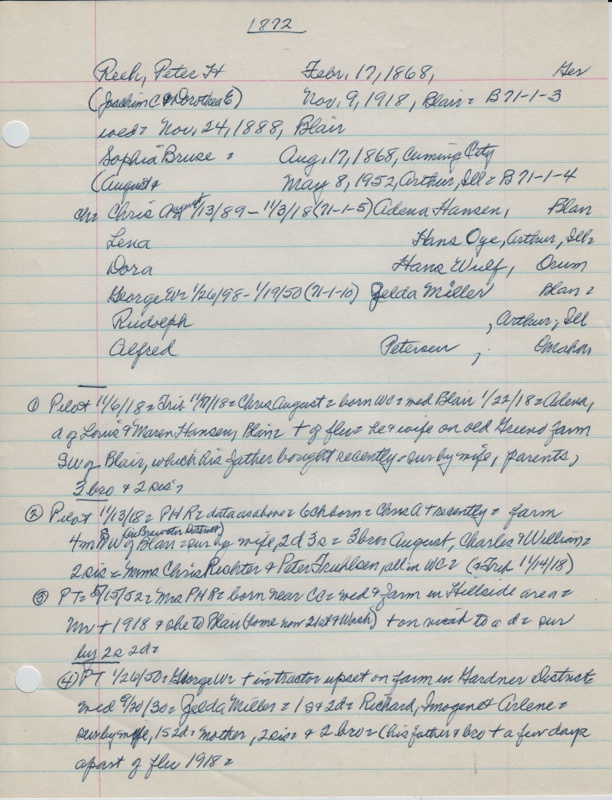 1872
Rech, Peter H Febr. 17, 1868, Ger
(Joachim C & Dorothea E) Nov. 9, 1918, Blair = B71-1-3
wed = Nov. 24, 1888, Blair
Sophia Bruse = Aug. 17, 1868, Cuming City
(August & May 8, 1952, Arthur, Ill = B71-1-4
ch = Chris August 1/13/89 - 11/3/18 (71-1-5) Adena Hansen, Blair
Lena Hans Oye, Arthur, Ill =
Dora Hans Wulf, Orum
George Wr 1/26/98 - 1/19/50 (71-1-10) Zelda Miller Blair =
Rudolph , Arthur, Ill
Alfred Petersen , Omaha
① Pilot 11/6/18 = Trib 11/7/18 = Chris August = born WC = med Blair 1/22/18 = Adena,
d of Louis & Maren Hansen, Blair + of flu = he & wife on old farm
SW of Blair, which his father bought recently = sur by wife, parents,
3 bro & 2 sis =
② Pilot 11/13/18 = PHR = data as above = 6 ch born = Chris A + recently = farm
(in Brewster District)
4m SW of Blair = sur by wife, 2d 3s = 3 bros August, Charles & William =
2 sis = Mmes Chris Richter & Peter Fruhlsen, all in WC = (& Trib 11/14/18)
③ PT = 5/15/52 = Mrs PHR = born near CC = med & farm in Hillside area =
Mr + 1918 & she to Blair (home now 21st & Wash) + on visit to a d = sur
by 2s 2d =
④ PT 1/26/50 = George Wr + in tractor upset on farm in Gardner District =
med 9/30/30 = Zelda Miller = 1s & 2d = Richard, Imogene & Arlene =
sur by wife, 1s 2d = mother, 2 sis = & 2 bro = (his father & bro + a few days
apart of flu 1918 =